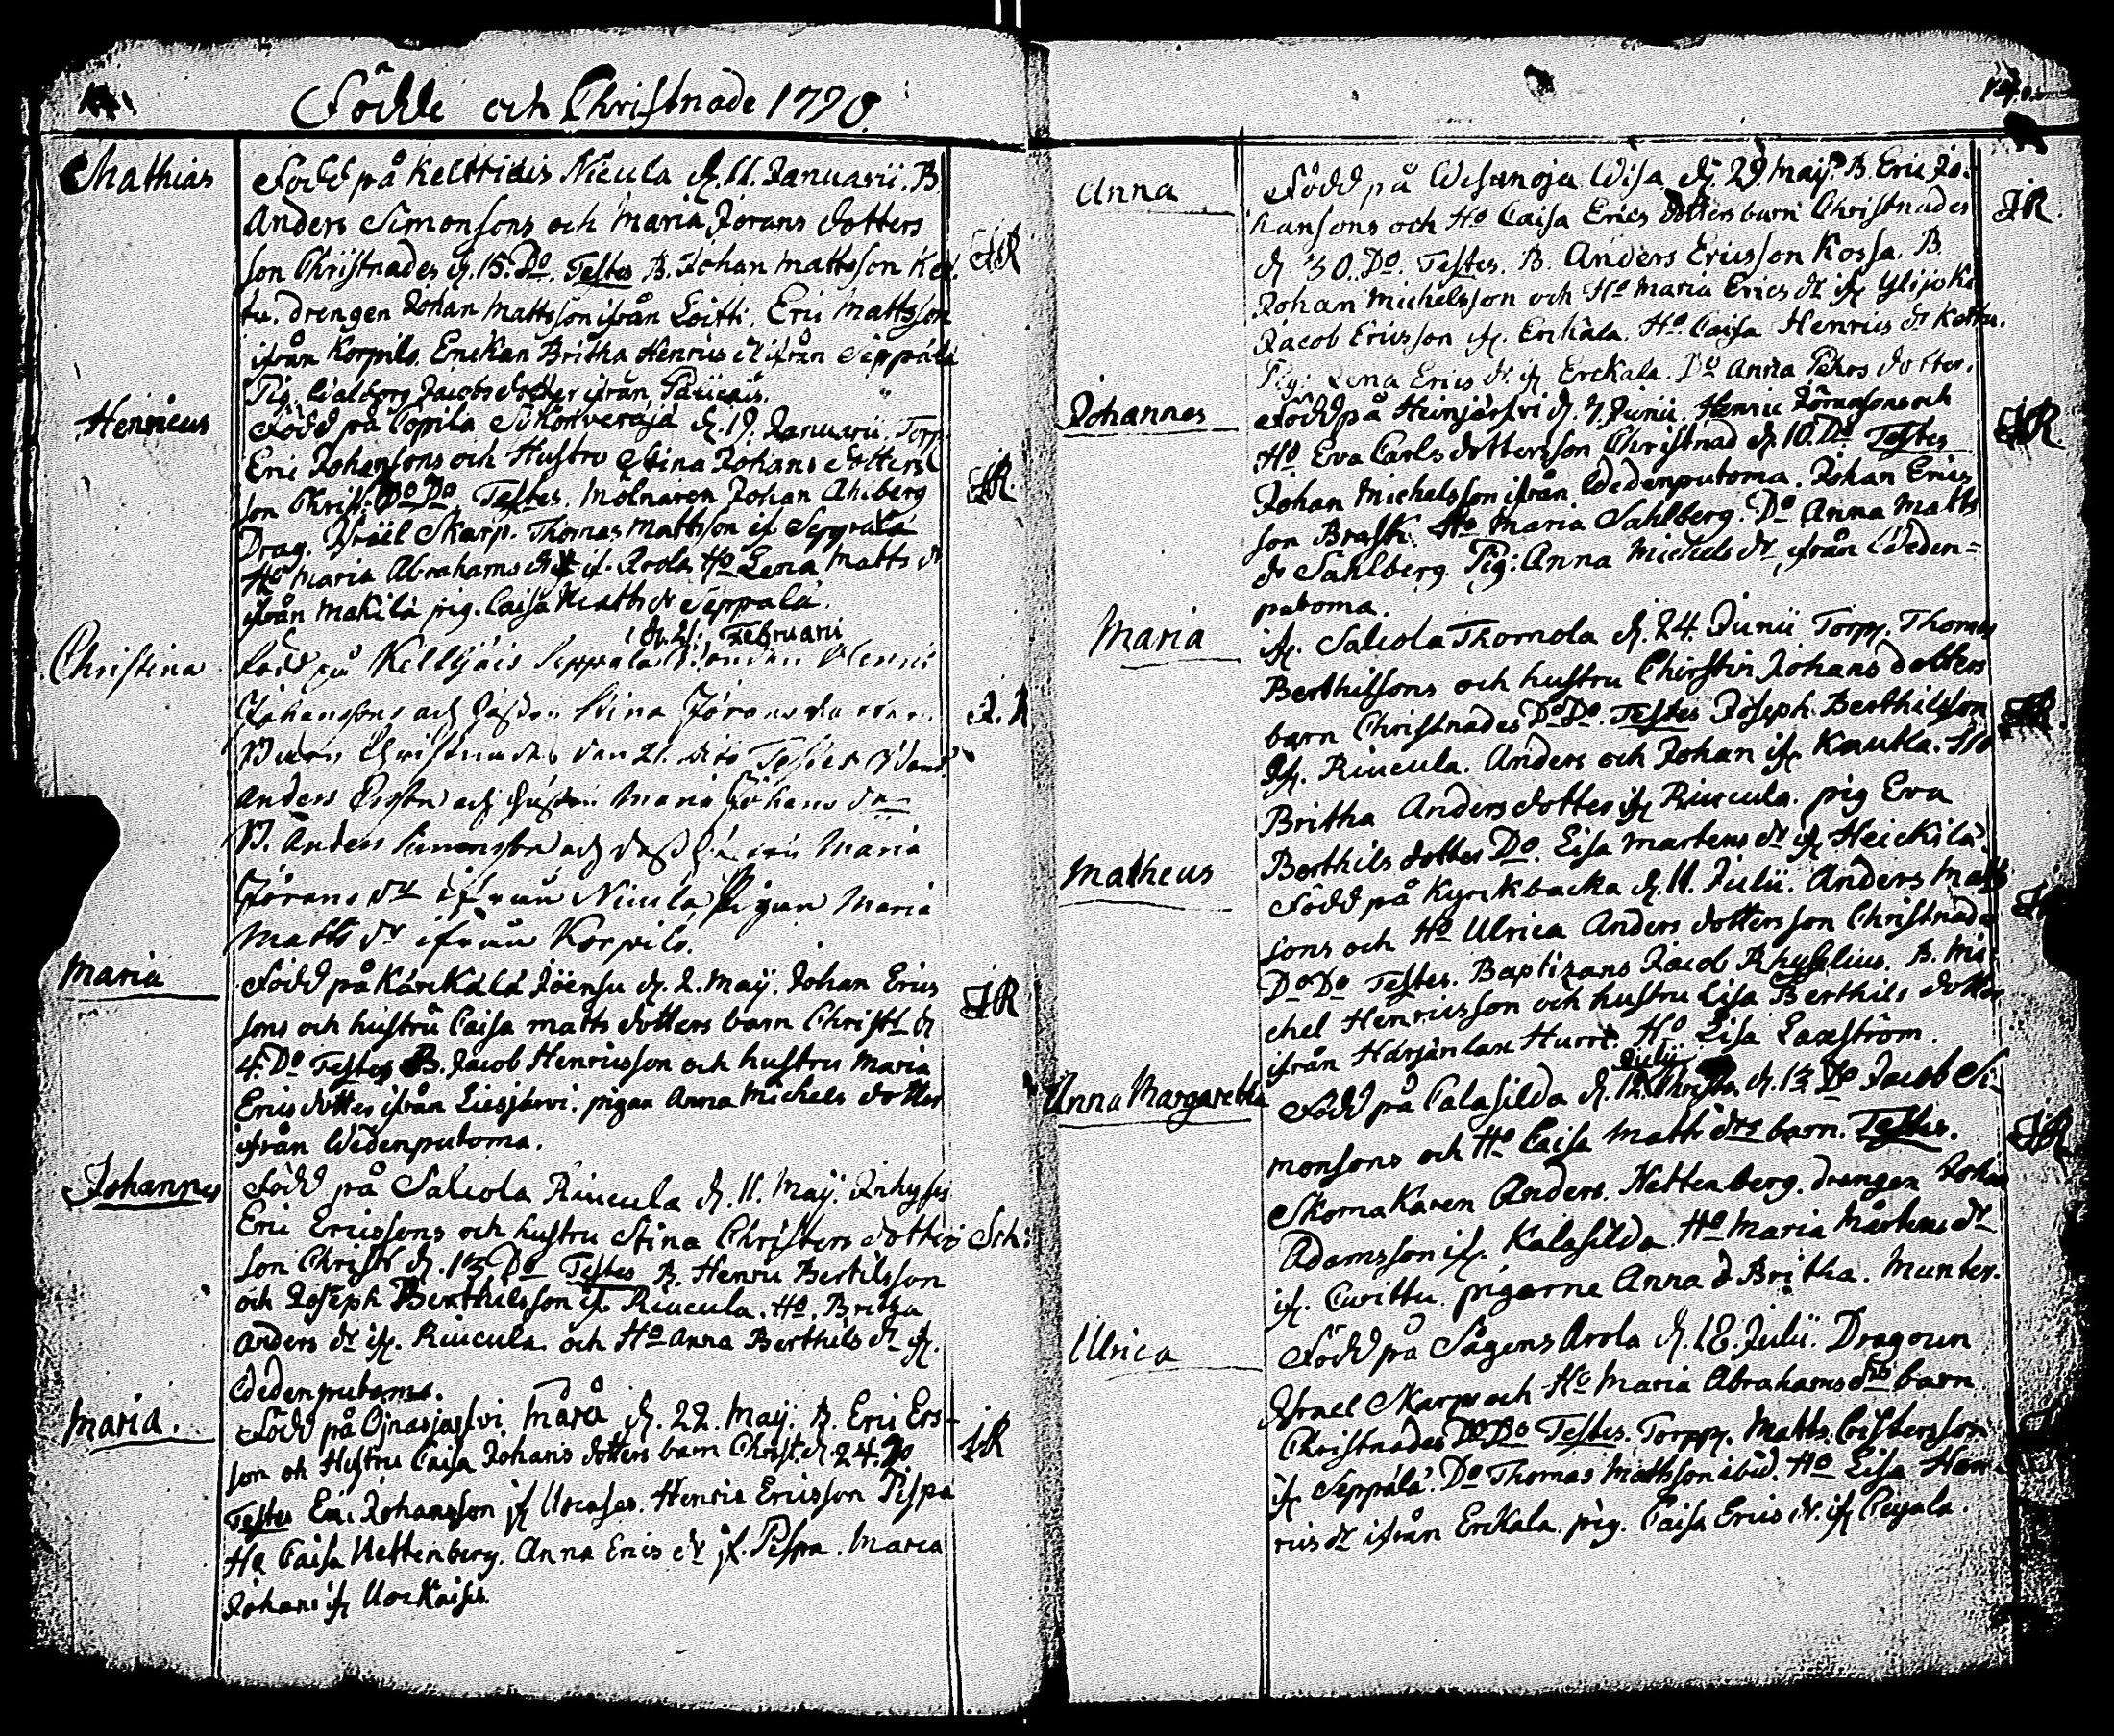 Födde och Christnade 1790.
Mathias
Född på Kelttiäis Nicula d. 11. Januarii. B.
Anders Simonsons och Maria Jörans dotters
son Christnades d. 15. Do. Testes B. Johan Mattsson Kor
tu. drengen Johan Mattsson ifrån Loitti. Eric Mattsson
ifrån Korpilo. Enckan Britha Henrics dr ifrån Seppälä
Pig. Walborg Jacobs dotter ifrån
JR
Henricus
Född på Copila d. 19. Januarii. Torp.
Eric Johansons och Hustro Stina Johans dotters
son Christ. Do Do. Testes. Molnaren Johan Ahlberg
Drag. Israël Skarp. Thomas Mattsson if. Seppälä
Ho Maria Abrahams dr if. Arola Ho Lena Matts dr
ifrån Mäkilä pig. Caisa Matts dr Seppälä.
JR.
Christina
d. 21. Februarii
Född på Keltijäis Seppälä Bonden Henric
Johanssons och Hustru Stina Jörans dotters
Barn Christnades den 21. dito Testes Bond.
Anders Ersson och Hustru Maria Johans dr
B. Anders Simonsson och dess Hustru Maria
Jörans dr ifrån Nicula, Pigan Maria
Matts dr ifrån Korpilo.
J. R
Maria
Född på Kärckälä Jöensu d. 2. Maÿ. Johan Erics
sons och hustru Caisa Matts dotters barn Christ. d
4. Do Testes B. Jacob Henricsson och hustru Maria
Erics dotter ifrån Liesjärvi. pigan Anna Michels dotter
ifrån Wedenputoma.
JR
Johannes
Född på Salcola Riucula d. 11. Maÿ. Inhyses
Eric Ericssons och hustru Stina Christers dotters
son Christ. d. 13 Do Testes B. Henric Bertilsson
och Joseph Berthilsson if. Riucula. Ho. Britha
Anders dr if. Riucula. och Ho Anna Berthils dr if.
Wedenputoma.
Sch:
Maria.
Född på Ojnasjärvi Mårå d. 22. Maÿ. B. Eric Ers-
son och Hustru Caisa Johans dotters barn Christ. d. 24. Do
Testes Eric Johansson if Henric Ericsson Pispa
Ho Caisa Nettenberg. Anna Erics dr if. Pispa. Maria
Johans if
JR
Anna
Född på Wesanoja Wisa d. 29. Maÿ. B. Eric Jo-
hansons och Ho Caisa Erics dotters barn Christnades
d. 30. Do. Testes. B. Anders Ericsson Kossa. B.
Johan Michelsson och Ho Maria Erics dr if Ylijoki
Jacob Ericsson if. Erckälä. Ho. Caisa Henrics dr Kettu.
Pig: Lena Erics dr. if Erckala. Do Anna Pehrs dotter.
JR.
Johannes
Född på Heinjärfvi d. 7. Junii. Henric Jöransons och
Ho Eva Carls dotters son Christnad d. 10. Do Testes
Johan Michelsson ifrån Wedenputoma. Johan Erics
son Brask. Ho Maria Sahlberg. Do Anna Matts
dr Sahlberg. Pig: Anna Michels dr ifrån Weden=
putoma.
JR.
Maria
if. Salcola Thomola d. 24. Junii Torp. Thomas
Berthilsons och hustru Chirstin Johans dotters
barn Christnades Do Do. Testes Joseph Berthilsson
if. Riucula. Anders och Johan if Kautka. Ho
Britha Anders dotter if Riucula. pig Eva
Berthils dotter Do. Lisa Martens dr if Heickilä.
JR.
Matheus
Född på Kyrckbacka d. 11. Julii. Anders Matts
sons och Ho Ulrica Anders dotters son Christnades
Do Do Testes. Baptizans Jacob B. Mi-
chel Henricsson och hustru Lisa Berthils dotter
ifrån Härjänlax Hurri. Ho. Lisa Laxström.
Anna Margaretha
Julii
Född på Calasilda d. 12. Christ. d. 13. Do Jacob Si-
monsons och Ho Caisa Matts drs barn. Testes.
Skomakaren Anders. Nettenberg. drengen Johan
Adamsson if. Kalasilda. Ho Maria Mårtens dr
if. Cwittu. pigorne Anna & Britha. Munter.
JR
Ulrica
Född på Sågens Arola d. 18. Julii. Dragoun
Israel Skarps och Ho Maria Abrahams drs barn
Christnades Do Do Testes. Torpp. Matts. Cristersson
if. Seppälä. Do Thomas Mattsson ibid. Ho Lisa Hen-
rics dr ifrån Erckala. pig. Caisa Erics dr. if